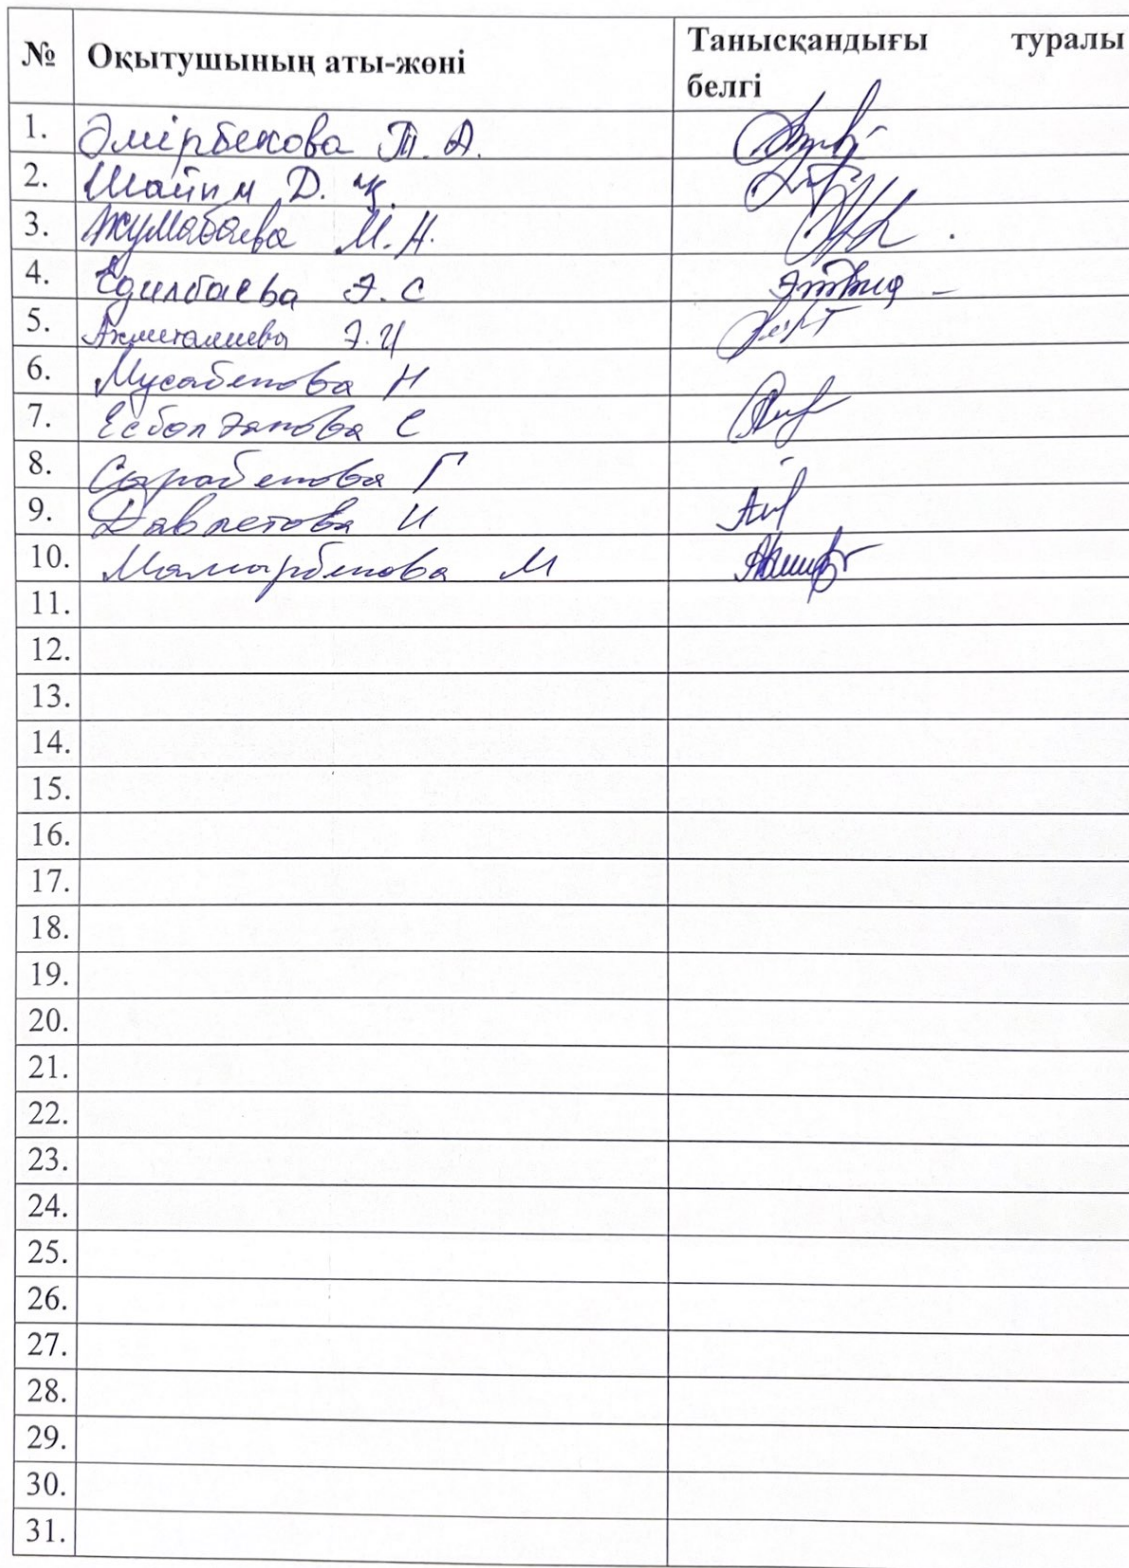 № Оқытушының аты-жөні Танысқандығы туралы
белгі
1. Әмірбекова Т. А.
2. Шайым Д. Қ.
3. Жумабаева М. Н.
4. Едилбаева Э. С
5. Ахметалиева Э. И
6. Мусабекова Н
7. Есболғанова С
8. Сырабекова Г
9. Давлетова И
10. Мамырбекова М
11.
12.
13.
14.
15.
16.
17.
18.
19.
20.
21.
22.
23.
24.
25.
26.
27.
28.
29.
30.
31.